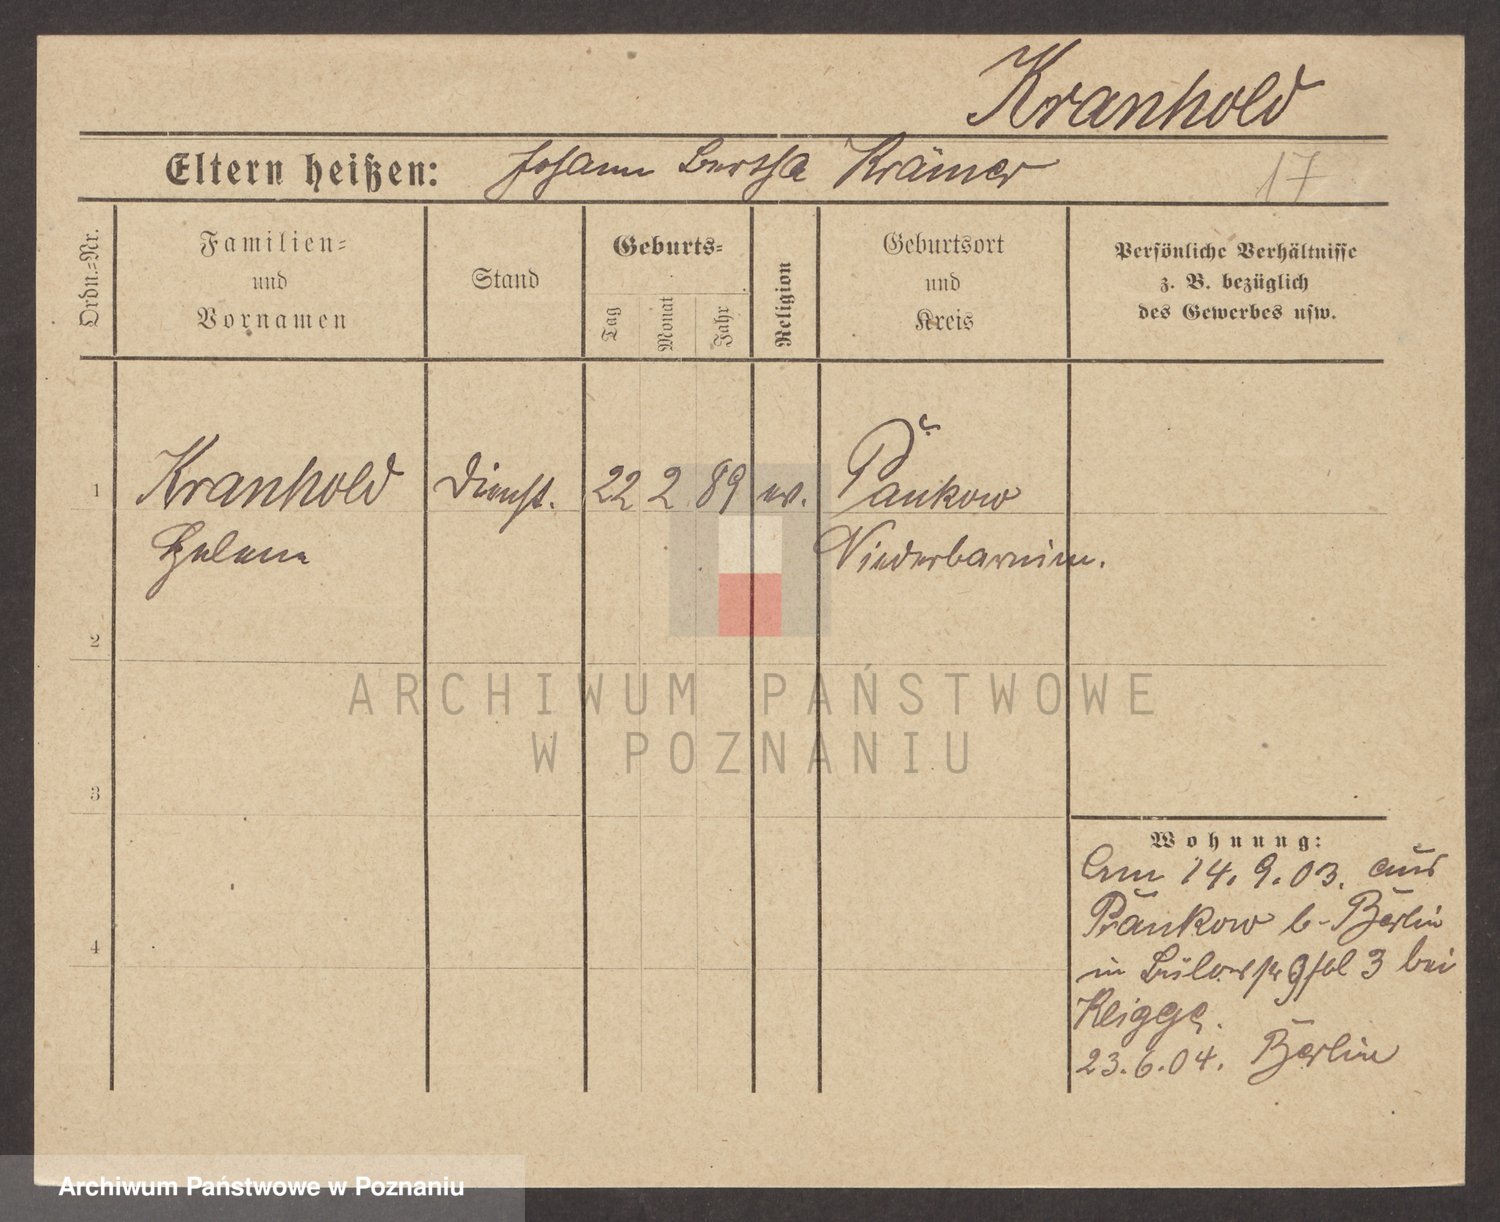 Kranhold
Eltern heißen: Johann Bertha Krämer
17
Ordn.=Nr.
Familien=
und
Vornamen
Stand
Geburts=
Tag
Monat
Jahr
Religion
Geburtsort
und
Kreis
Persönliche Verhältnisse
z. B. bezüglich
des Gewerbes usw.
1 Kranhold Dienst. 22 2 89 ev. Pankow
Helene Niederbarnim.
2
ARCHIWUM PAŃSTWOWE
W POZNANIU
3
Wohnung:
Am 14.9.03. aus
Pankow b- Berlin
in Bülowstr 3 bei
4
23.6.04. Berlin
Archiwum Państwowe w Poznaniu